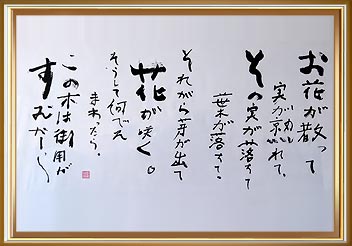 お花が散って
実が熟れて、
その実が落ちて
葉が落ちて、
それから芽が出て
花が咲く。
そうして何べん
まわったら、
この木は御用が
すむかしら